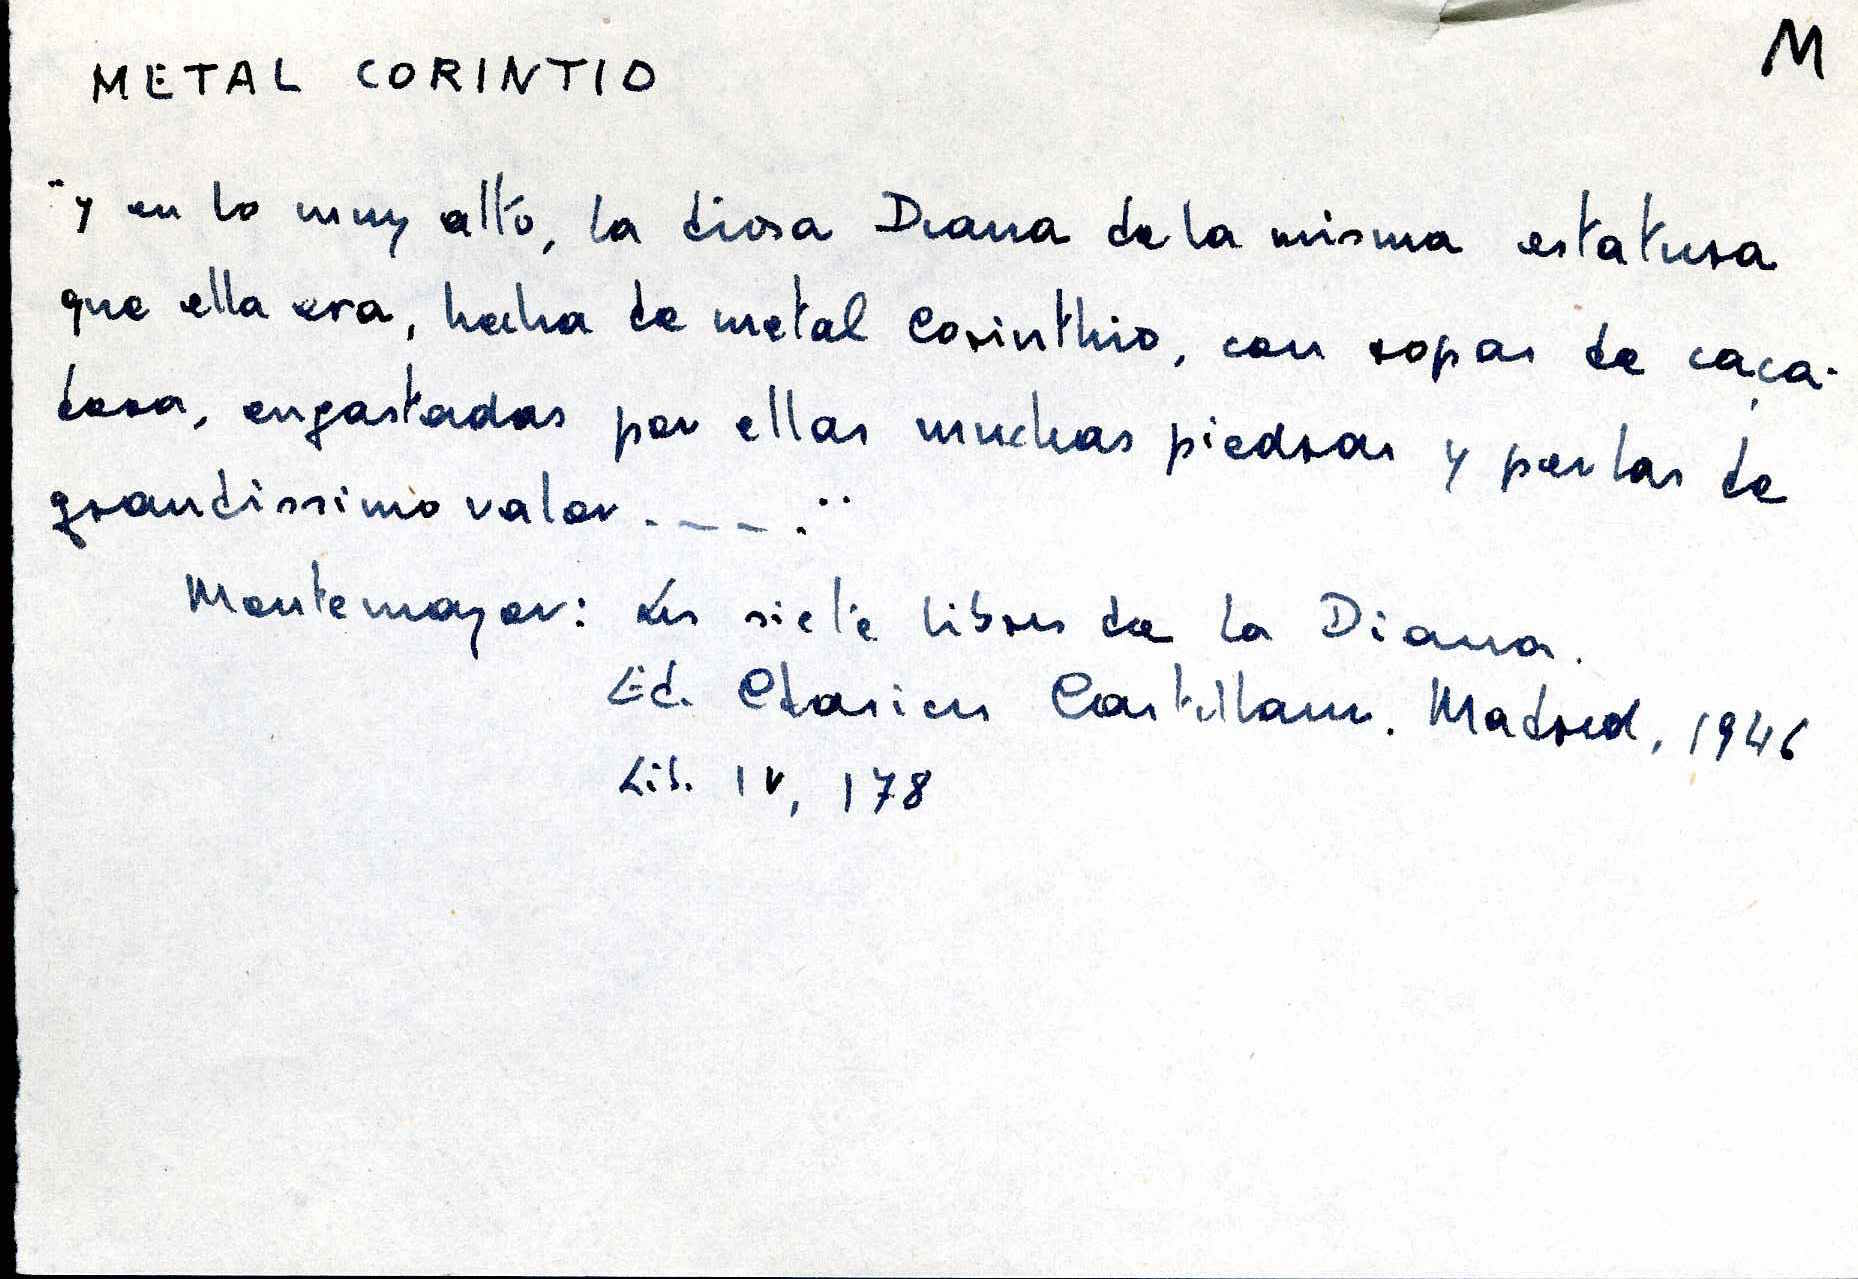 METAL CORINTIO
M
"y en lo muy alto, la diosa Diana de la misma estatura
que ella era, hecha de metal Corinthio, con ropas de caça-
dora, engastadas por ellas muchas piedras y perlas de
grandissimo valor. _ _ _ ."
Montemayor: Los siete libros de la Diana.
Ed. Clasicos Castellanos. Madrid, 1946
Lib. IV, 178